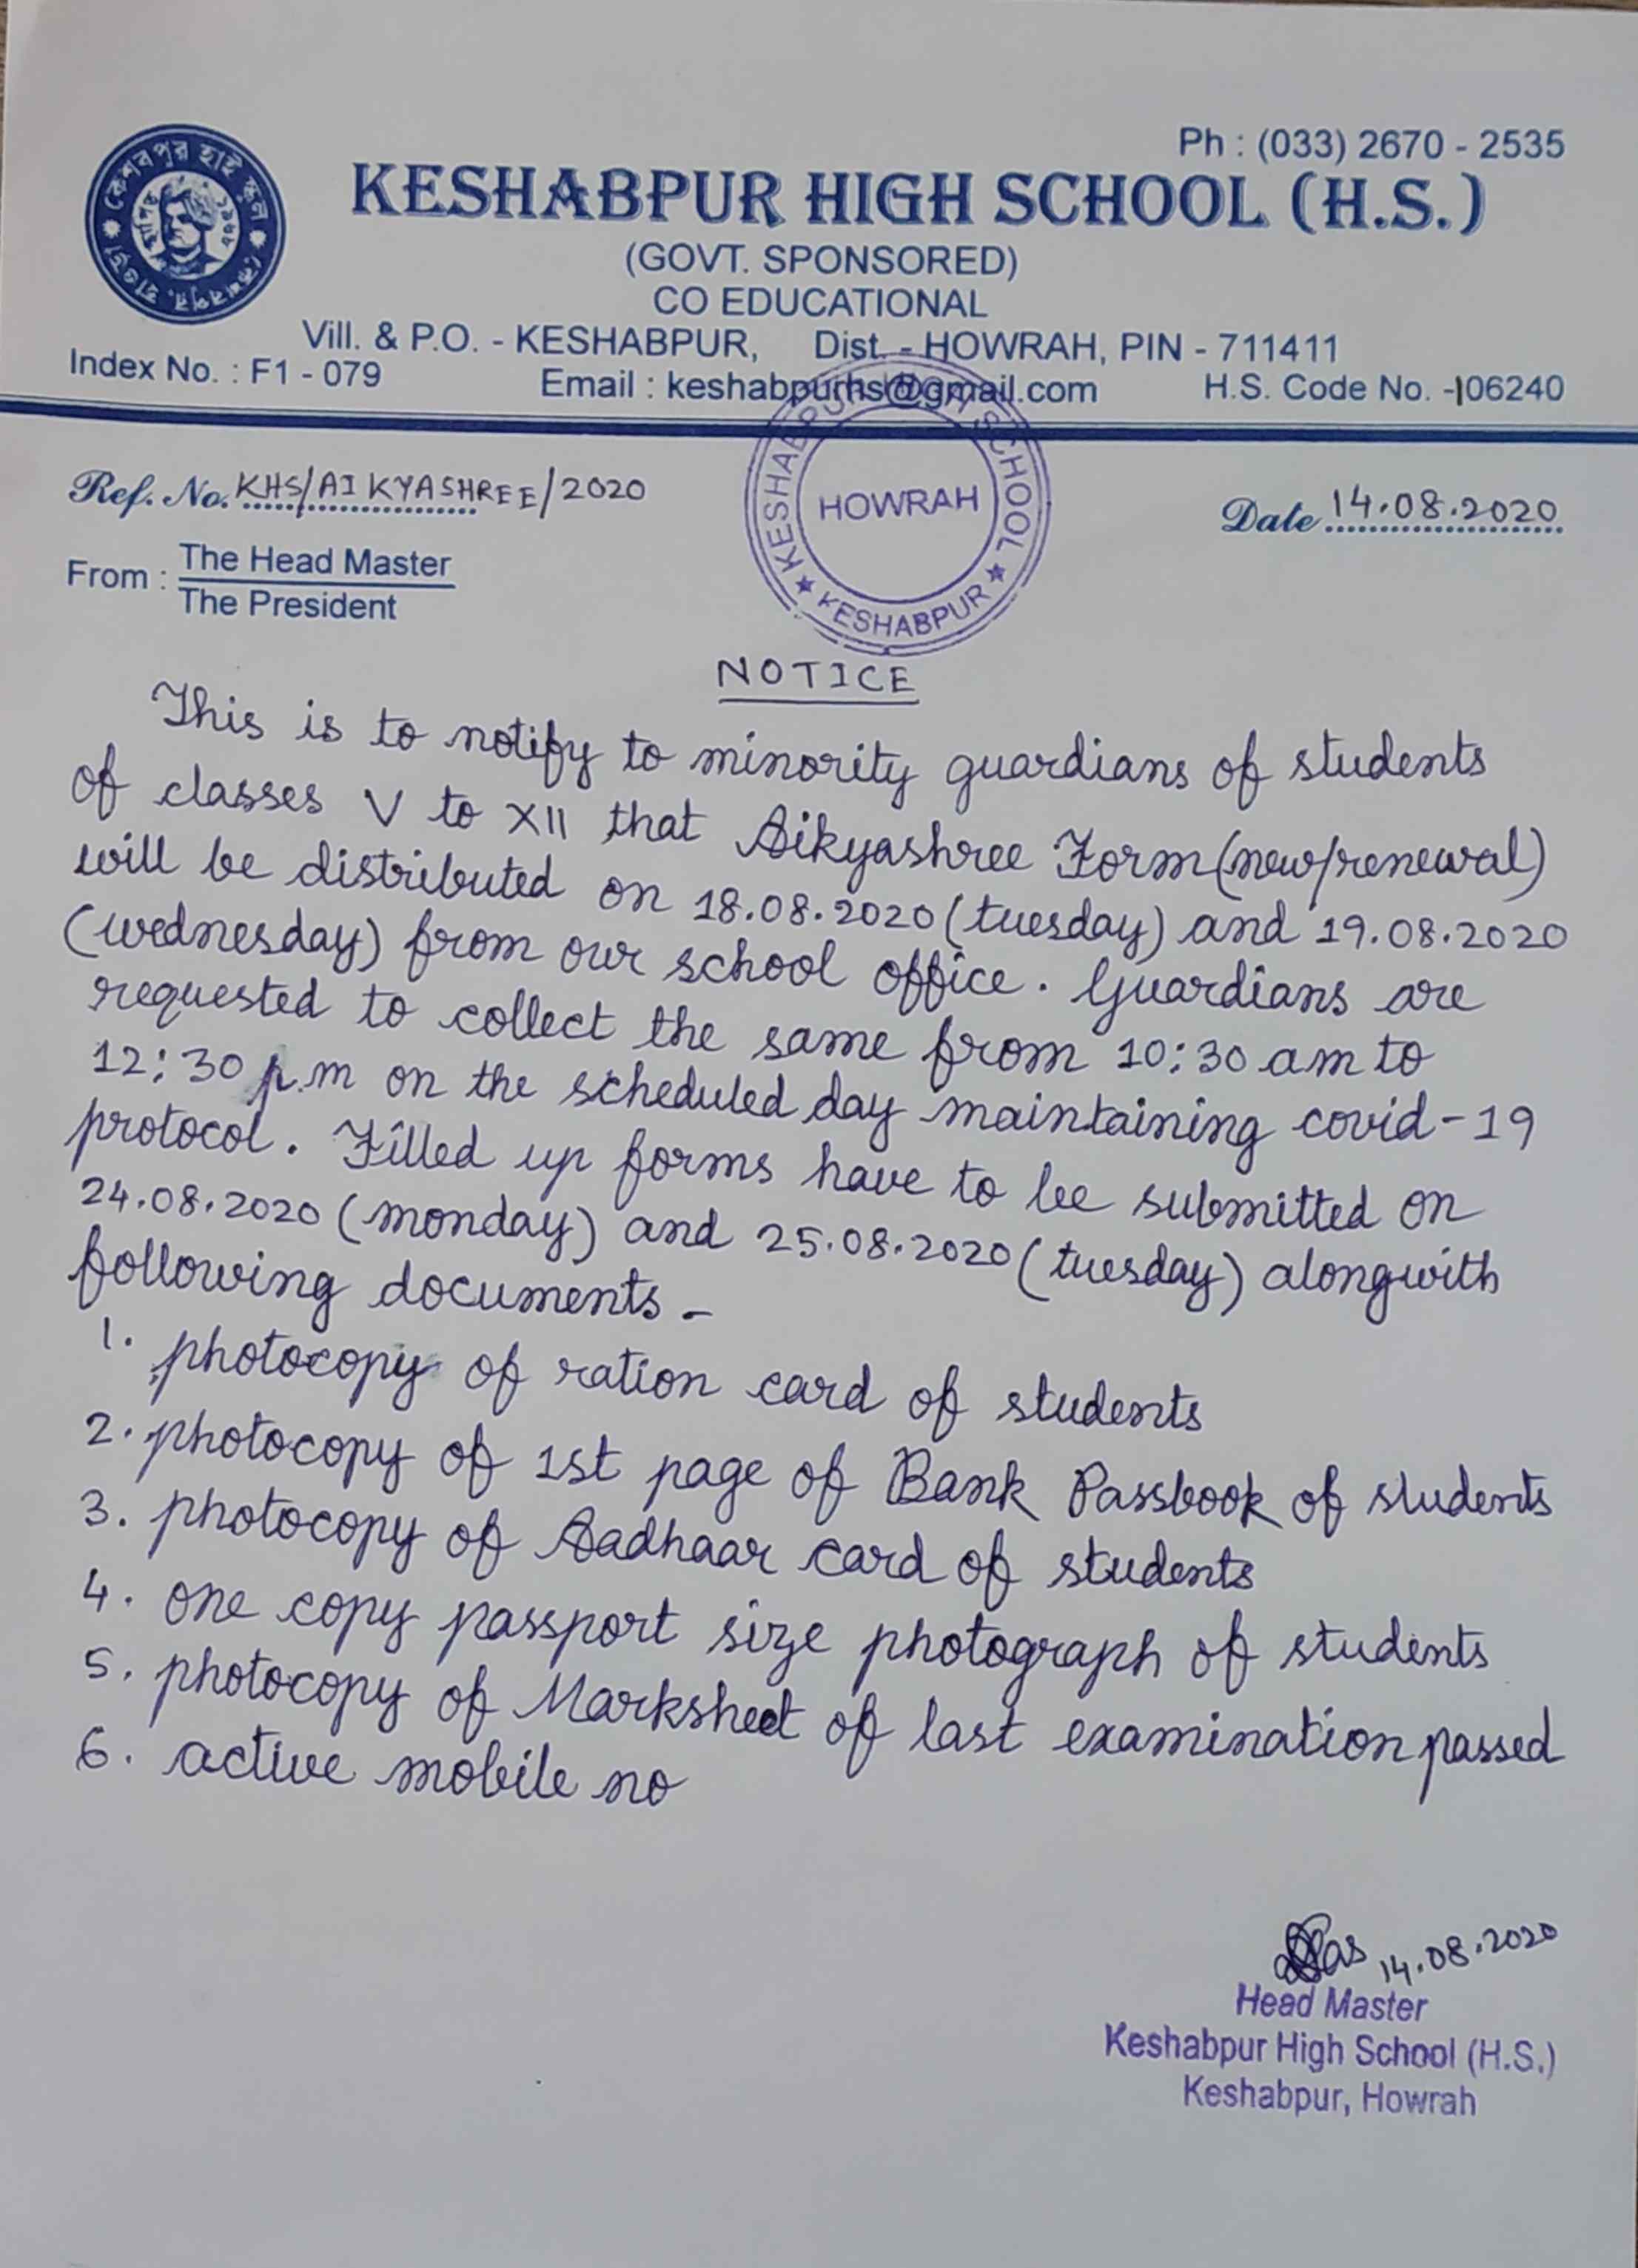 Ph : (033) 2670 - 2535
কেশবপুর হাই স্কুল
KESHABPUR HIGH SCHOOL (H.S.)
(GOVT. SPONSORED)
CO EDUCATIONAL
Vill. & P.O. - KESHABPUR, Dist. - HOWRAH, PIN - 711411
Index No. : F1 - 079 Email : keshabpurhs@gmail.com H.S. Code No. -106240
KESHABPUR HIGH SCHOOL
HOWRAH
★ KESHABPUR ★
Ref. No. KHS/AIKYASHREE/2020 Date 14.08.2020
From : The Head Master
The President
NOTICE
This is to notify to minority guardians of students
of classes V to XII that Aikyashree Form (new/renewal)
will be distributed on 18.08.2020 (tuesday) and 19.08.2020
(wednesday) from our school office. Guardians are
requested to collect the same from 10:30 am to
12:30 p.m on the scheduled day maintaining covid-19
protocol. Filled up forms have to be submitted on
24.08.2020 (monday) and 25.08.2020 (tuesday) alongwith
following documents -
1. photocopy of ration card of students
2. photocopy of 1st page of Bank Passbook of students
3. photocopy of Aadhaar card of students
4. one copy passport size photograph of students
5. photocopy of Marksheet of last examination passed
6. active mobile no
14.08.2020
Head Master
Keshabpur High School (H.S.)
Keshabpur, Howrah